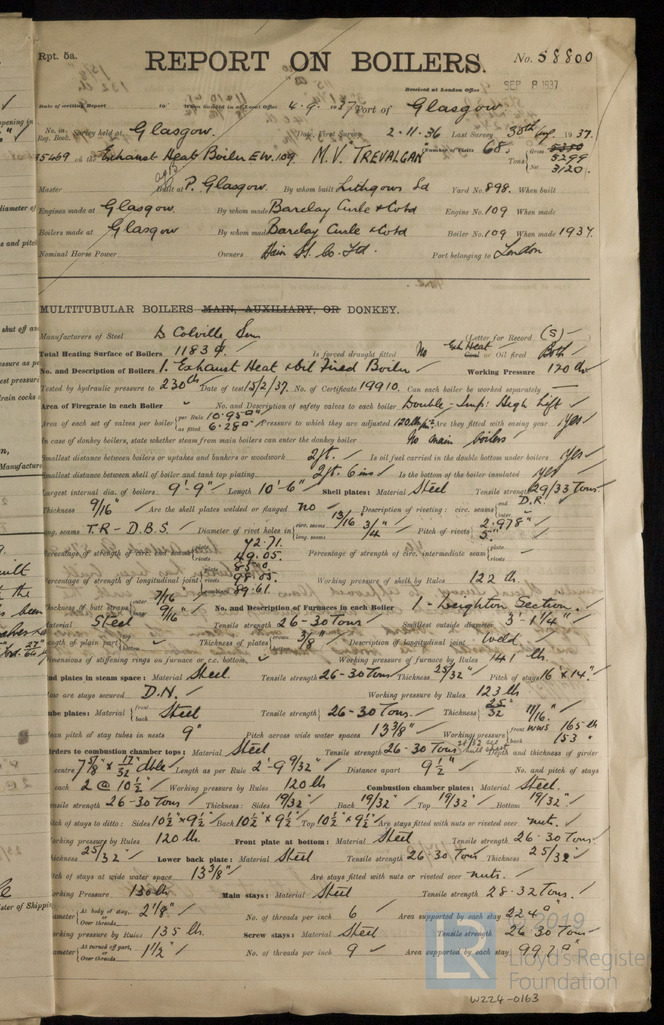 Rpt. 5a.
REPORT ON BOILERS.
No. 58800
Received at London Office SEP 8 1937
Date of writing Report to When handed in at Local Office 4. 9. 1937 Port of Glasgow
No. in Reg. Book. Survey held at Glasgow. Date, First Survey 2.11.36 Last Survey 30th Aug. 1937.
95469 on the Exhaust Heat Boiler EW.109. M.V. TREVALGAN (Number of Visits 68) Tons Gross 5299 Net 3120.
Master Built at P. Glasgow. By whom built Lithgows Ld Yard No. 898. When built
Engines made at Glasgow By whom made Barclay Curle & Co Ld Engine No. 109 When made
Boilers made at Glasgow By whom made Barclay Curle & Co Ld Boiler No. 109 When made 1937
Nominal Horse Power Owners Hain SS. Co. Ltd. Port belonging to London
MULTITUBULAR BOILERS MAIN, AUXILIARY, OR DONKEY.
Manufacturers of Steel D Colville Sons (Letter for Record (S) )
Total Heating Surface of Boilers 1183 Is forced draught fitted No Ex. Heat Coal or Oil fired Both
No. and Description of Boilers 1. Exhaust Heat & Oil Fired Boiler Working Pressure 120 lbs
Tested by hydraulic pressure to 230 lb Date of test 15/2/37. No. of Certificate 19910. Can each boiler be worked separately —
Area of Firegrate in each Boiler No. and Description of safety valves to each boiler Double-Imp: High Lift
Area of each set of valves per boiler per Rule 10.95 □" as fitted 6.28 □" Pressure to which they are adjusted 120 lb Are they fitted with easing gear Yes
In case of donkey boilers, state whether steam from main boilers can enter the donkey boiler No main boilers
Smallest distance between boilers or uptakes and bunkers or woodwork 2 ft. Is oil fuel carried in the double bottom under boilers Yes
Smallest distance between shell of boiler and tank top plating 2 ft. 6 ins Is the bottom of the boiler insulated yes
Largest internal dia. of boilers 9'-9" Length 10'-6" Shell plates: Material Steel Tensile strength 29/33 Tons.
Thickness 9/16" Are the shell plates welded or flanged no Description of riveting: circ. seams end D.R.
long. seams T.R-D.B.S. Diameter of rivet holes in circ. seams 13/16 long. seams 3/4" Pitch of rivets 2.978" 5"
Percentage of strength of circ. end seams plate 72.71 rivets 49.05 Percentage of strength of circ. intermediate seam plate rivets
Percentage of strength of longitudinal joint plate 85.0 rivets 98.05 combined 89.61 Working pressure of shell by Rules 122 lb
Thickness of butt straps outer 7/16 inner 9/16" No. and Description of Furnaces in each Boiler 1 - Deighton Section.
Material Steel Tensile strength 26-30 Tons Smallest outside diameter 3'-1 1/4"
Length of plain part top bottom Thickness of plates crown bottom 3/8" Description of longitudinal joint Weld.
Dimensions of stiffening rings on furnace or c.c. bottom Working pressure of furnace by Rules 141 lb
End plates in steam space: Material Steel Tensile strength 26-30 Tons Thickness 25/32" Pitch of stays 16" x 14"
How are stays secured D.N. Working pressure by Rules 123 lb
Tube plates: Material front back Steel Tensile strength 26-30 Tons Thickness 25/32 11/16"
Mean pitch of stay tubes in nests 9" Pitch across wide water spaces 13 3/8" Working pressure front WWS 165 lb back 153
Girders to combustion chamber tops: Material Steel Tensile strength 26-30 Tons Depth and thickness of girder
at centre 7 5/8 x 17/32 dble Length as per Rule 2'-9 9/32" Distance apart 9 1/2" No. and pitch of stays
in each 2 @ 10 1/2" Working pressure by Rules 120 lb Combustion chamber plates: Material Steel.
Tensile strength 26-30 Tons Thickness: Sides 19/32" Back 19/32" Top 19/32" Bottom 19/32"
Pitch of stays to ditto: Sides 10 1/2" x 9 1/2" Back 10 1/2" x 9 1/2" Top 10 1/2" x 9 1/2" Are stays fitted with nuts or riveted over nuts.
Working pressure by Rules 120 lb Front plate at bottom: Material Steel Tensile strength 26-30 Tons
Thickness 25/32" Lower back plate: Material Steel Tensile strength 26-30 Tons Thickness 25/32"
Pitch of stays at wide water space 13 3/8" Are stays fitted with nuts or riveted over nuts.
Working Pressure 130 lb Main stays: Material Steel Tensile strength 28-32 Tons.
Diameter At body of stay, or Over threads 2 1/8" No. of threads per inch 6 Area supported by each stay 224 □"
Working pressure by Rules 135 lb Screw stays: Material Steel Tensile strength 26-30 Tons
Diameter At turned off part, or Over threads 1 1/2" No. of threads per inch 9 Area supported by each stay 99.7 □"
© 2019
LR Lloyd's Register
Foundation
W224-0163